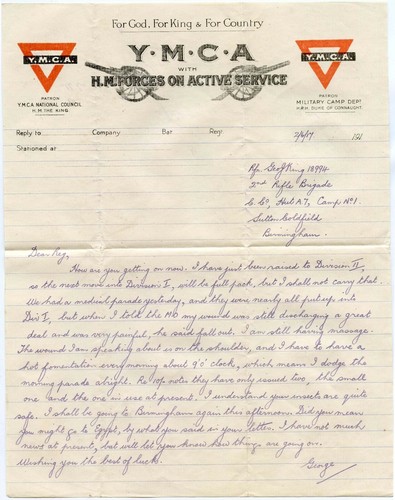 For God, For King & For Country
Y.M.C.A
Y·M·C·A
Y.M.C.A.
WITH
H.M. FORCES ON ACTIVE SERVICE
PATRON
Y.M.C.A. NATIONAL COUNCIL
H.M. THE KING
PATRON
MILITARY CAMP DEPT
H.R.H. DUKE OF CONNAUGHT
Reply to Company Bat Regt 2/6/17 191
Stationed at
Rfn Geo King 18994
2nd Rifle Brigade
C. Co, Hut A7, Camp No 1.
Sutton Coldfield
Birmingham.
Dear Reg,
How are you getting on now. I have just been raised to Division II,
so the next move into Division I, will be full pack, but I shall not carry that.
We had a medical parade yesterday, and they were nearly all put up into
Div I, but when I told the MO my wound was still discharging a great
deal and was very painful, he said fall out. I am still having massage.
The wound I am speaking about is on the shoulder, and I have to have a
hot fomentation every morning about 9 o' clock, which means I dodge the
morning parade alright. Re 10/- note they have only issued two, the small
one and the one in use at present. I understand your insects are quite
safe. I shall be going to Birmingham again this afternoon. Did you mean
you might go to Egypt, by what you said in your letter. I have not much
news at present, but will let you know how things are going on.
Wishing you the best of luck.
George